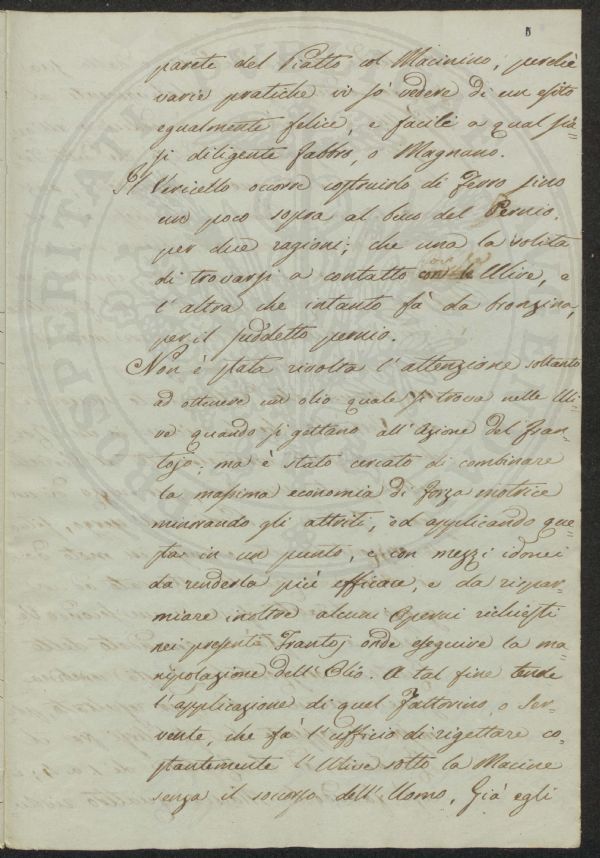 5
parete del Piatto col Macinino; perchè
varie pratiche vi fò vedere di un esito
egualmente felice, e facile a qual sia=
si diligente Fabbro, o Magnano.
Il Vericello ocorre costruirlo di Ferro sino
un poco sopra al buco del Pernio.
per due ragioni; che una la solita
di trovarsi a contatto con le Ulive, e
l'altra che intanto fà da bronzina,
per il suddetto pernio.
Non è stata rivolta l'attenzione soltanto
ad ottenere un olio quale si trova nelle Uli=
ve quando si gettano all'Azione del Fran=
tojo; ma è stato cercato di combinare
la massima economia di forza motrice
minorando gli attriti, od applicando que=
sta in un punto, e con mezzi idonei
da renderla più efficace, e da rispar=
miare inoltre alcuni Operai richiesti
nei presenti Frantoj onde eseguire la ma=
nipolazione dell'Olio. A tal fine tende
l'applicazione di quel Fattorino, o Ser=
vente, che fà l'ufficio di rigettare co=
stantemente l'Ulive sotto la Macine
senza il soccorso dell'Uomo. Già egli
PROSPERITATI